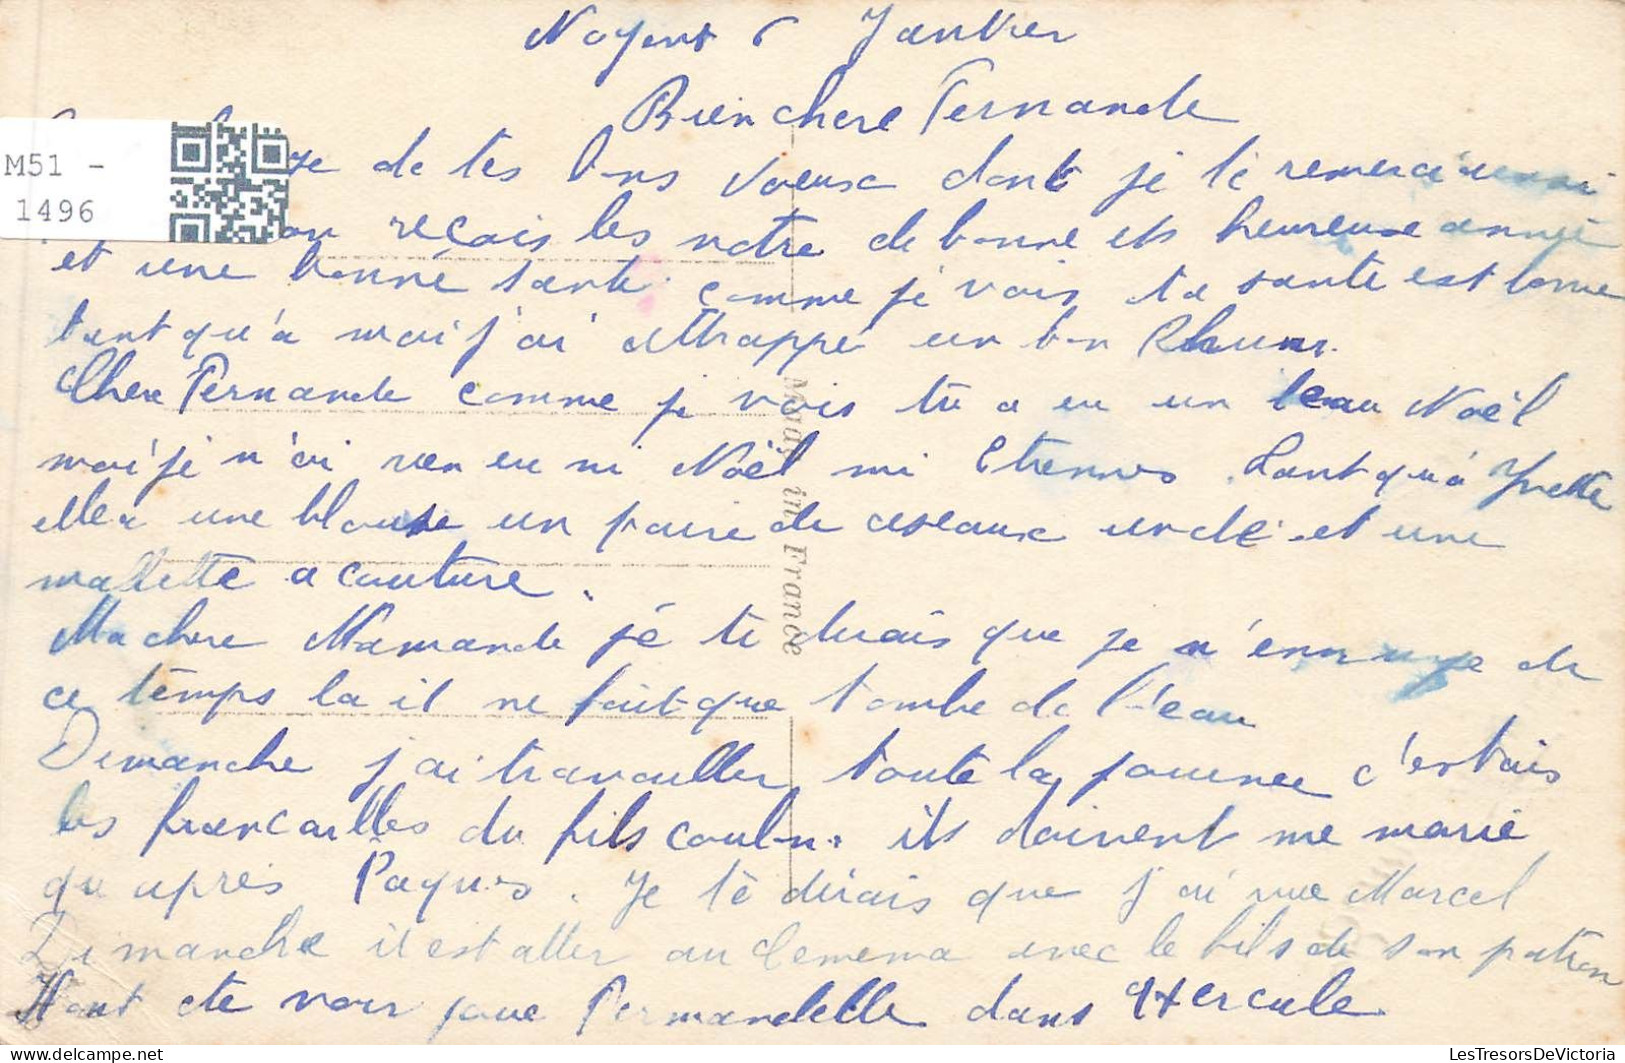 Nogent 6 Janvier
Bien chere Fernande
de tes bons voeuse dont je te remerci
M51 -
1496
recois les notre de bonne et heureuse année
et une bonne santé comme je vois ta santé est bonne
tant qu'a moi j'ai attrappé un bon Rhume.
Chere Fernande comme je vois tu a eu un beau Noël
moi je n'ai rien eu ni Noël ni Etrennes. Tant qu'a Yvette
elle a une blouse un paire de ciseaux un dé et une
mallette a couture.
Ma chere Nanande je te dirais que je m'ennuye de
ce temps la il ne fait que tombe de l'eau
Dimanche j'ai travailler toute la journee c'ertais
les francailles du fils coulon ils doivent me marié
qu apres Paques. Je te dirais que j'ai vue Marcel
Dimanche il est aller au Cemema avec le fils de son patron
Hont ete voir joue Fernandelle dans Hercule
Made in France
LesTresorsDeVictoria
delcampe.net